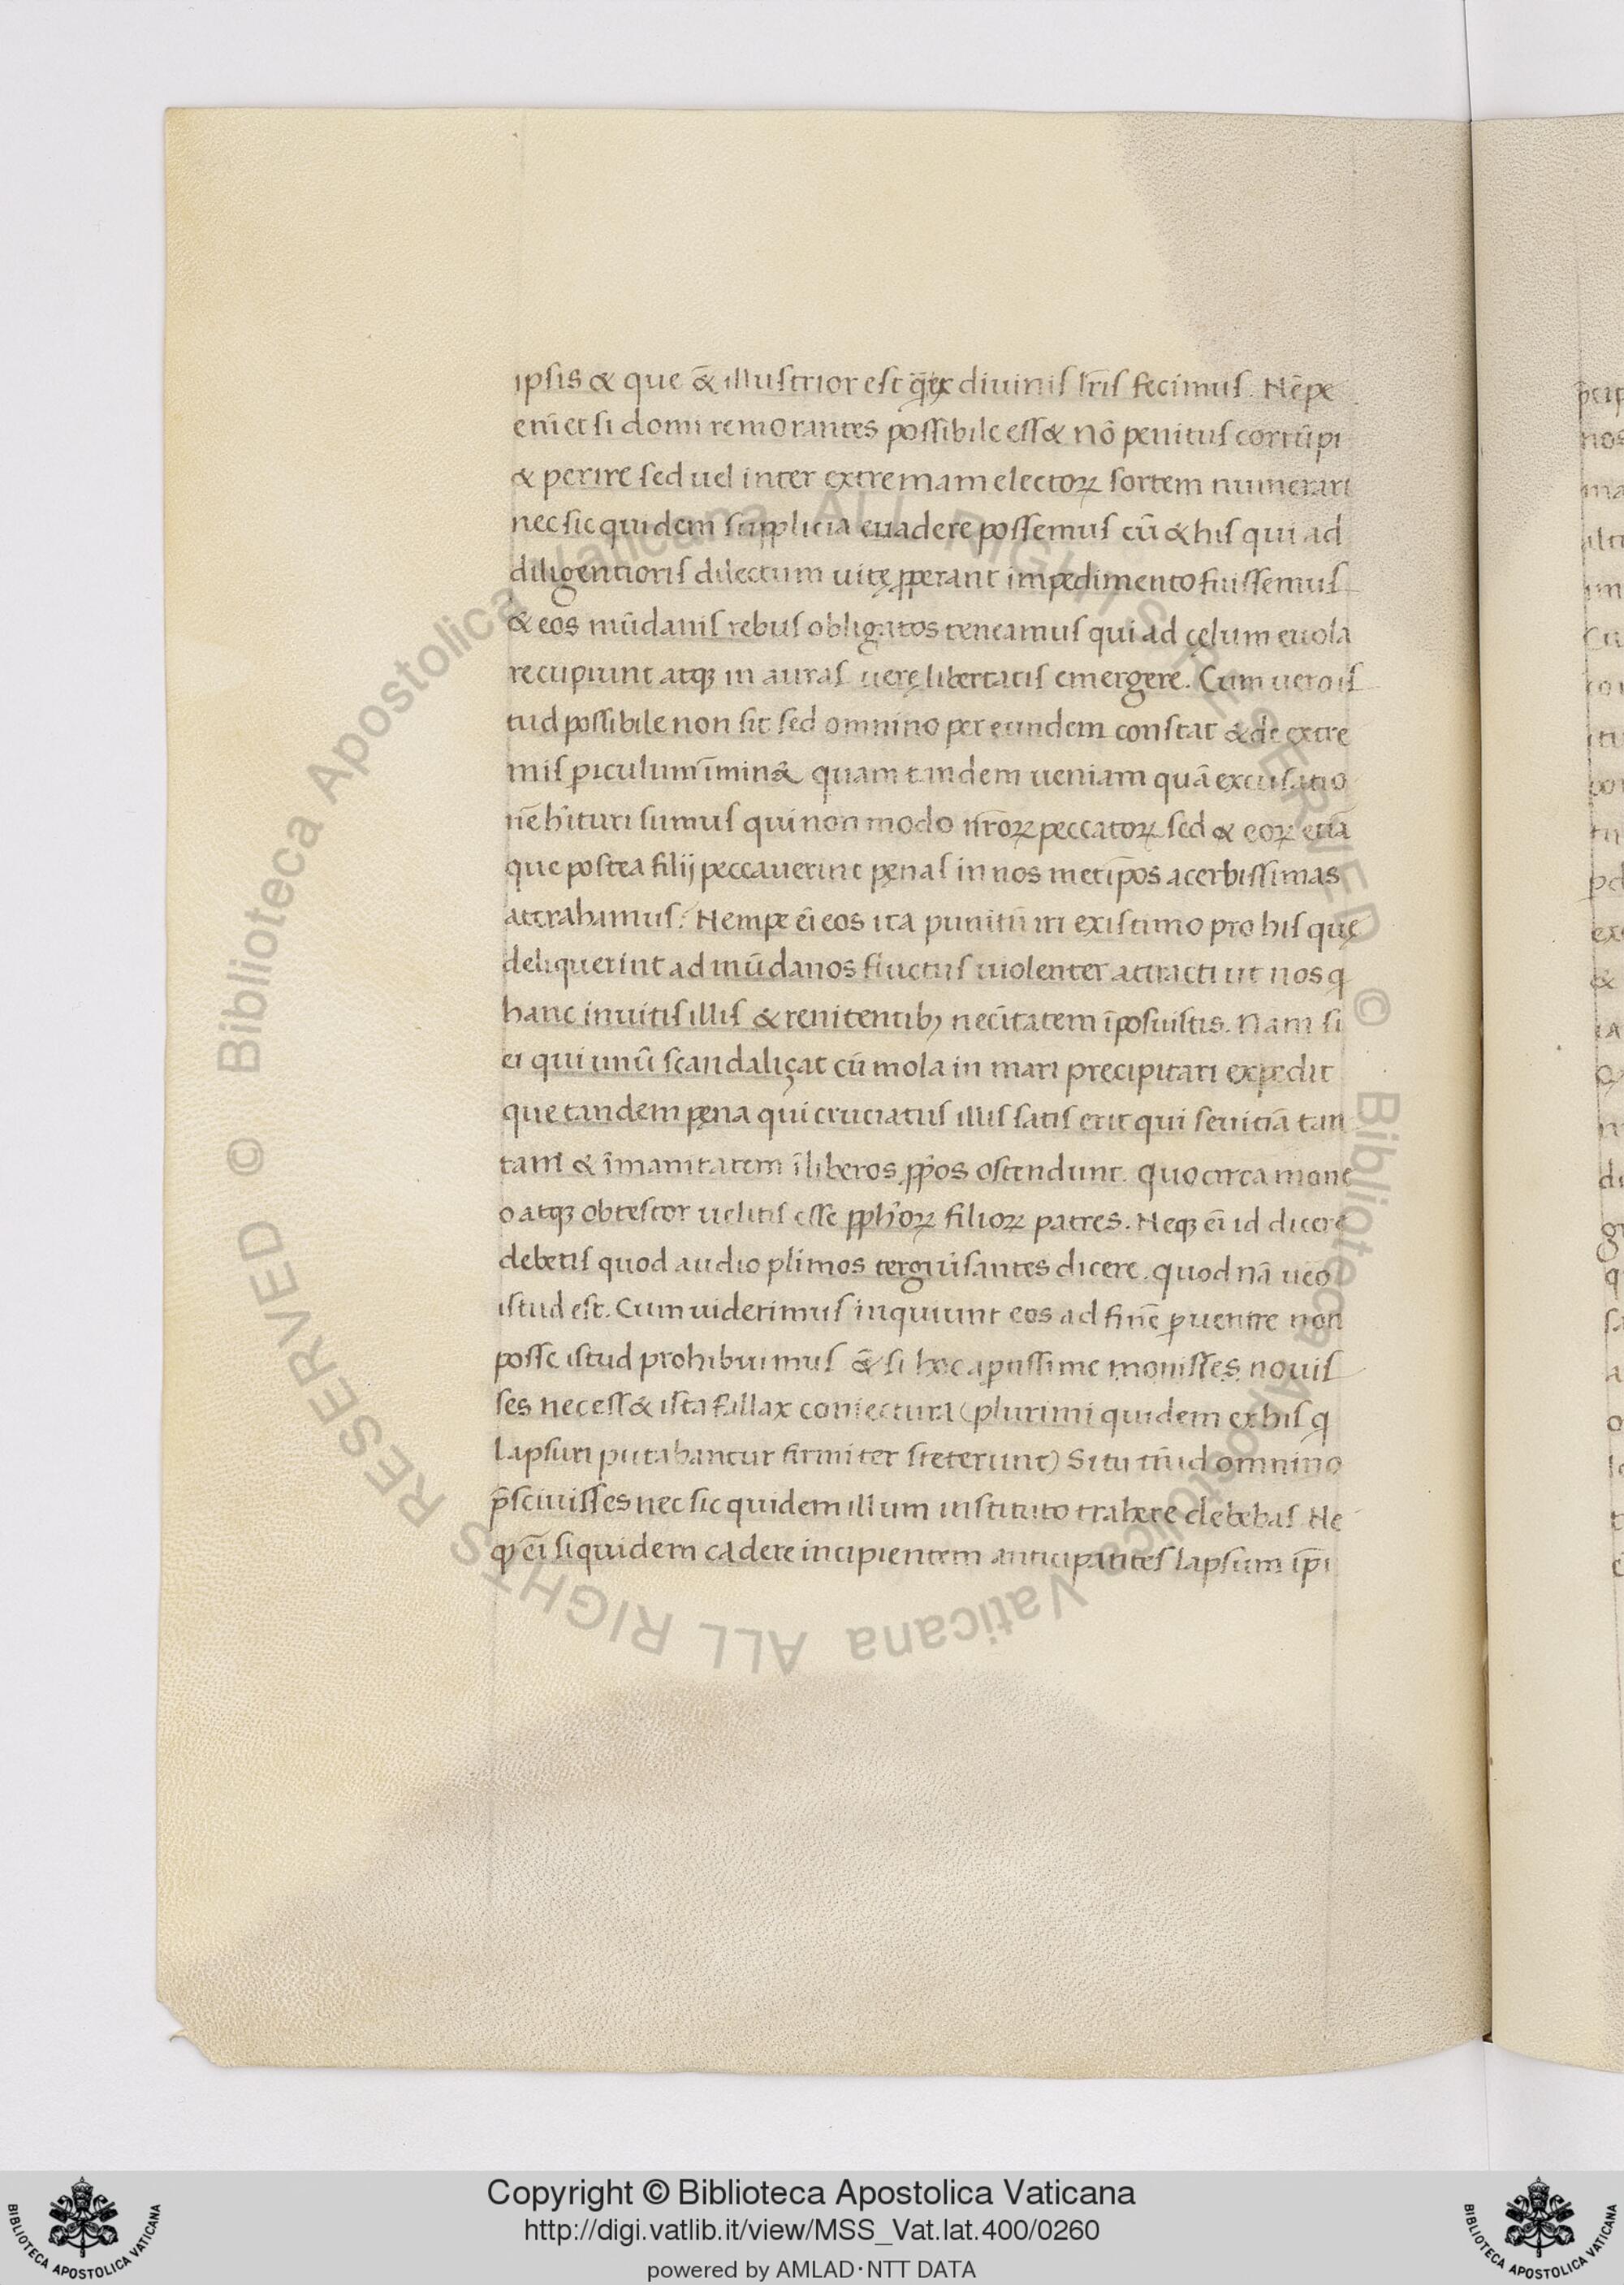 ipsis & que &̄ illustrior est q̄ ex divinis lr̄is fecimus. Nēpe
enī et si domi remorantes possibile ess& nō penitus corrūpi
& perire sed uel inter extremam electoꝝ sortem numerari
nec sic quidem supplicia euadere possemus cū & his qui ad
diligentioris dilectum uitę ꝓperant impedimento fuissemus
& eos mūdanis rebus obligatos teneamus qui ad cęlum euola
re cupiunt atqꝫ in auras uerę libertatis emergere. Cum uero is
tud possibile non sit sed omnino per eundem constat & de extre
mis ꝑiculum īmin& quam tandem ueniam quā excusatio
nē hituri sumus qui non modo nr̄oꝝ peccatoꝝ sed & eoꝝ etiā
que postea filij peccauerint pęnas in nos metip̄os acerbissimas
attrahimus? Nempe ēi eos ita punitū iri existimo pro his quę
deliquerint ad mūdanos fluctus uiolenter attracti ut nos q
hanc inuitis illis & renitentibꝫ necītatem īposuistis. Nam si
ei qui unū scandaliçat cū mola in mari precipitari expedit
que tandem pęna qui cruciatus illis satis erit qui seuitiā tan
tam & īmanitatem ī liberos ꝓp̄os ostendunt. Quocirca mone
o atqꝫ obtestor uelitis esse ꝓph̄oꝝ filioꝝ patres. Neqꝫ ēi id dicere
debetis quod audio plimos tergiūsantes dicere. quod nā ueo
istud est. Cum uiderimus inquiunt eos ad finē ꝑuenire non
posse istud prohibuimus &̄ si hoc aptissime monisses nouis
ses necess& ista fallax coniectura (plurimi quidem ex his q
lapsuri putabantur firmiter steterunt) Si tu tn̄ id omnino
p̄sciuisses nec sic quidem illum instituto trahere debebas. Ne
qꝫ ēi siquidem cadere incipientem anticipantes lapsum ip̄i
Copyright © Biblioteca Apostolica Vaticana
http://digi.vatlib.it/view/MSS_Vat.lat.400/0260
powered by AMLAD·NTT DATA
BIBLIOTECA APOSTOLICA VATICANA
BIBLIOTECA APOSTOLICA VATICANA
© Biblioteca Apostolica Vaticana ALL RIGHTS RESERVED © Biblioteca Apostolica Vaticana ALL RIGHTS RESERVED